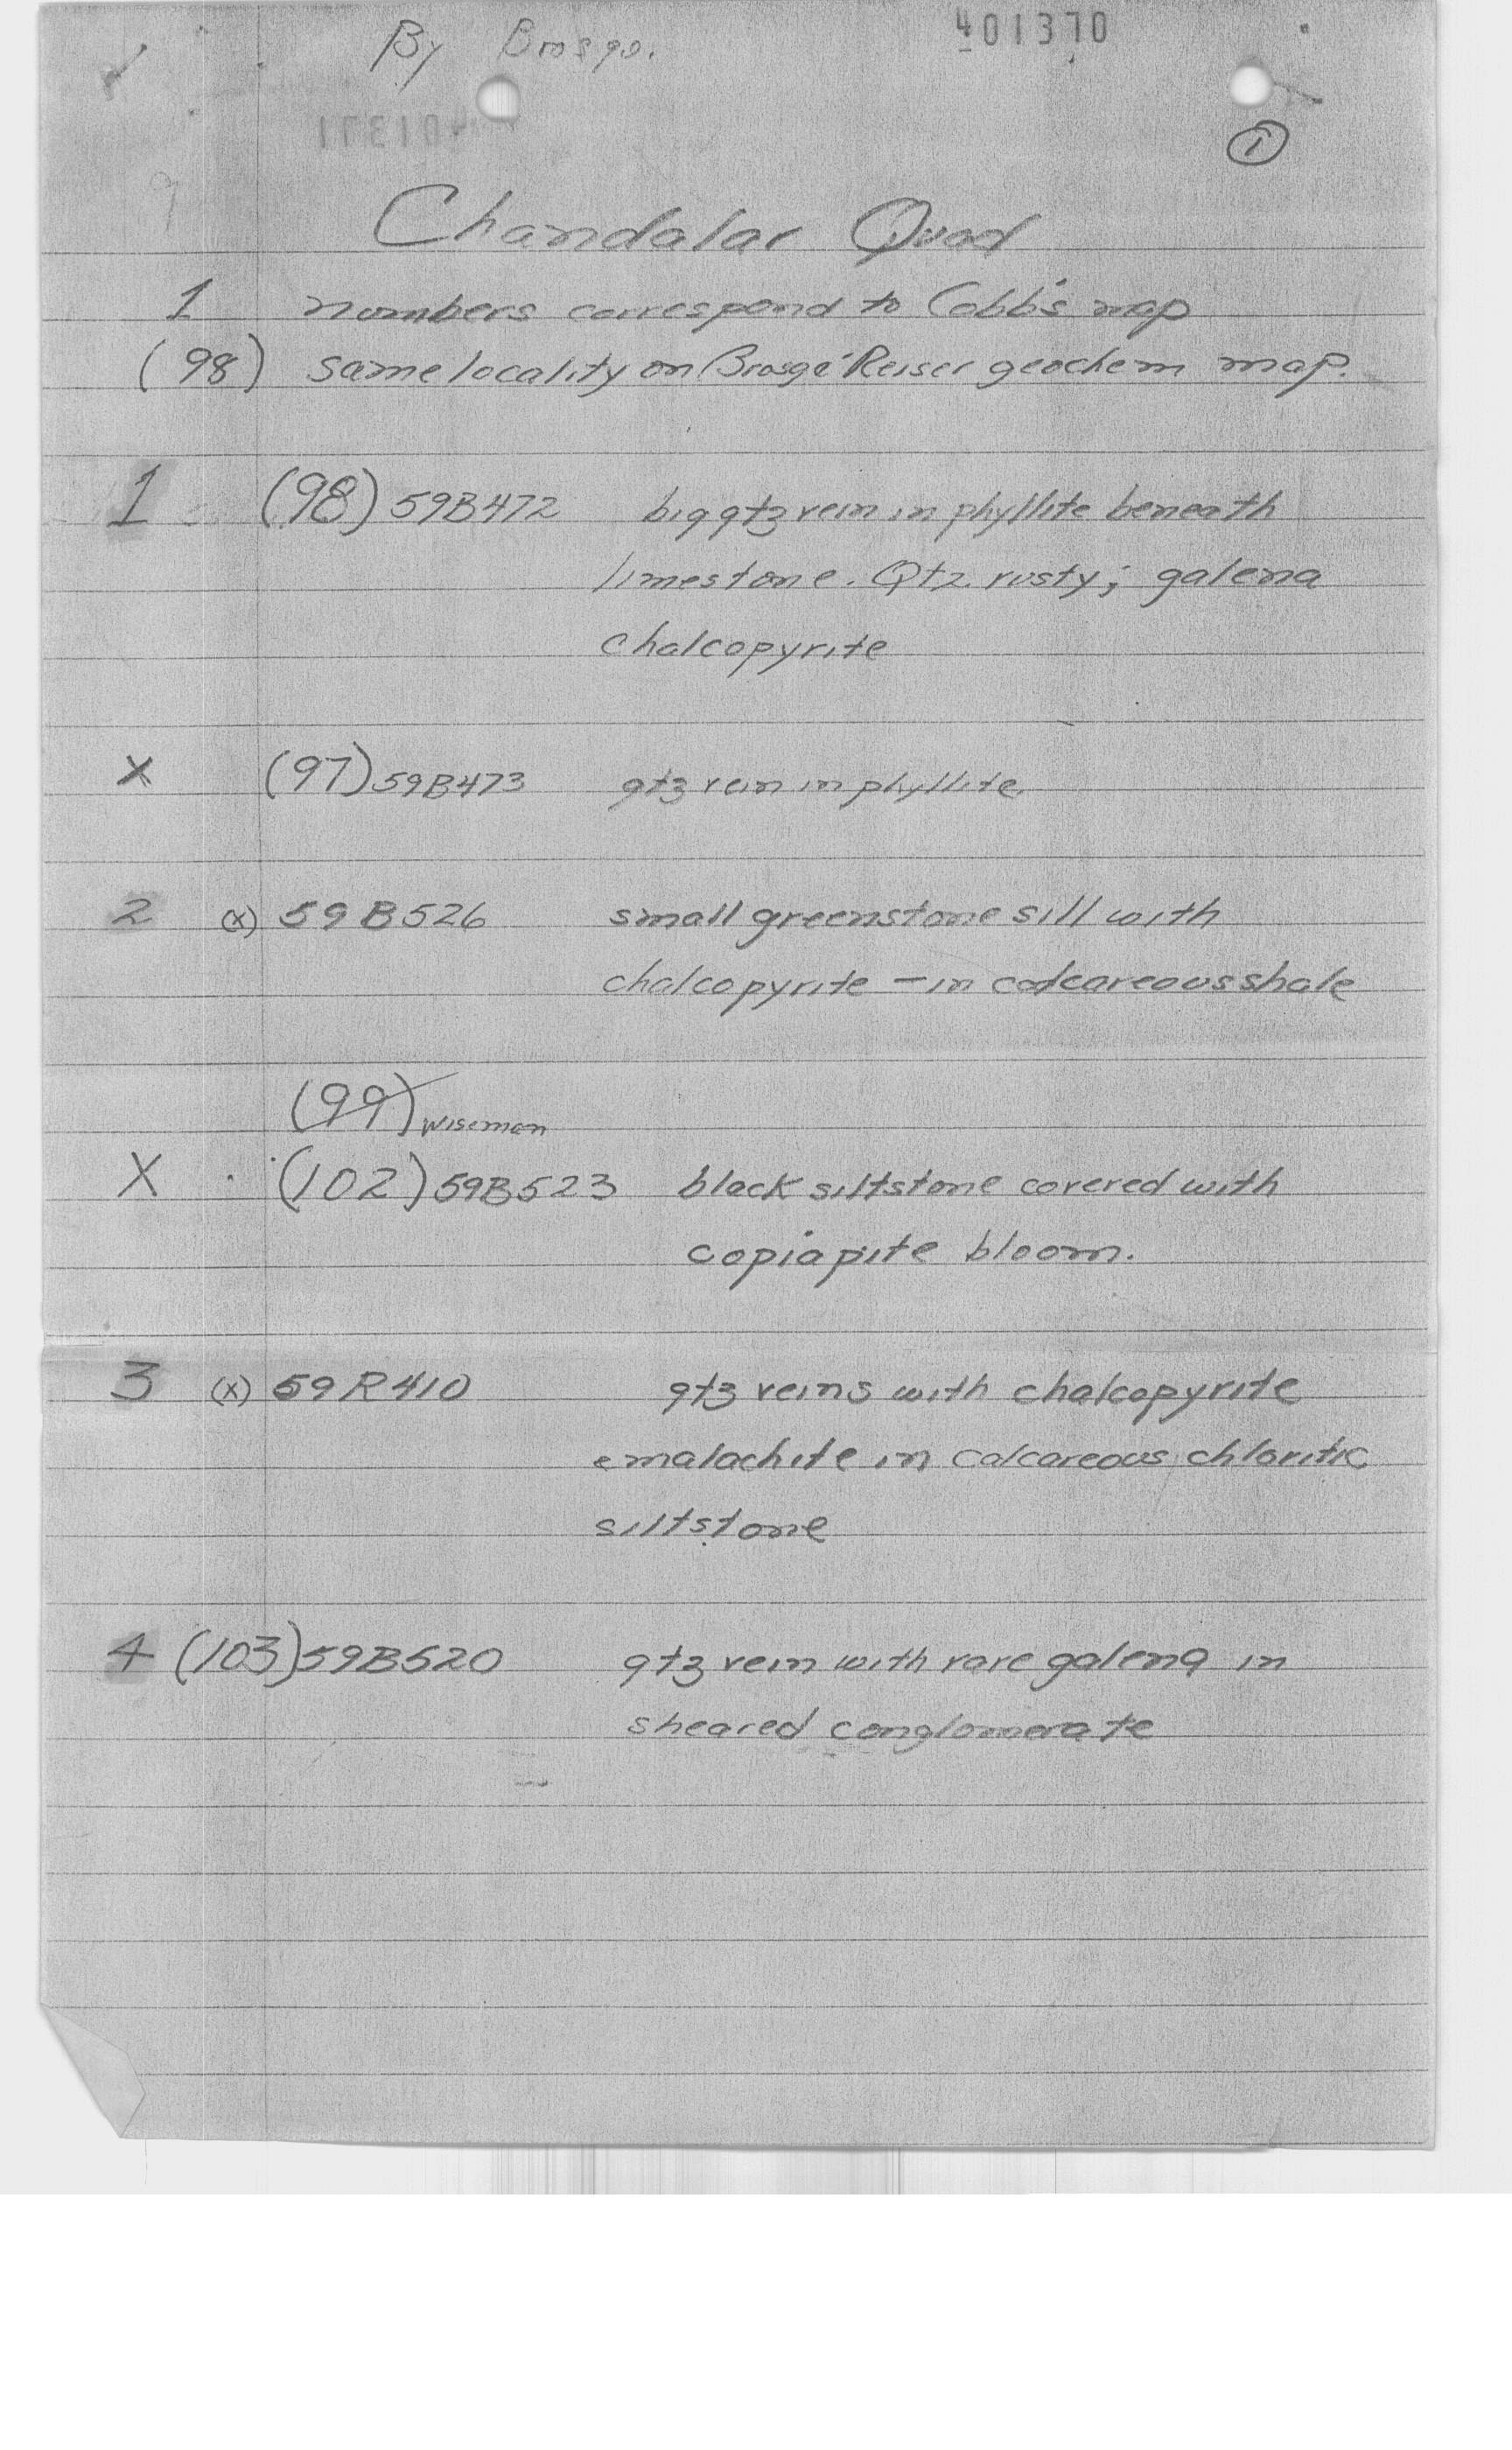 By Brosge.
401370
1
Chandalar Quad
1 numbers correspond to Cobb's map
(98) same locality on Brosgé Reiser geochem map.
1 (98) 59B472 big qtz vein in phyllite beneath
limestone. Qtz rusty; galena
chalcopyrite
X (97) 59B473 qtz vein in phyllite.
2 (x) 59B526 small greenstone sill with
chalcopyrite – in calcareous shale
(99) Wiseman
X (102) 59B523 black siltstone covered with
copiapite bloom.
3 (x) 59R410 qtz veins with chalcopyrite
malachite in calcareous chloritic
siltstone
4 (103) 59B520 qtz vein with rare galena in
sheared conglomerate